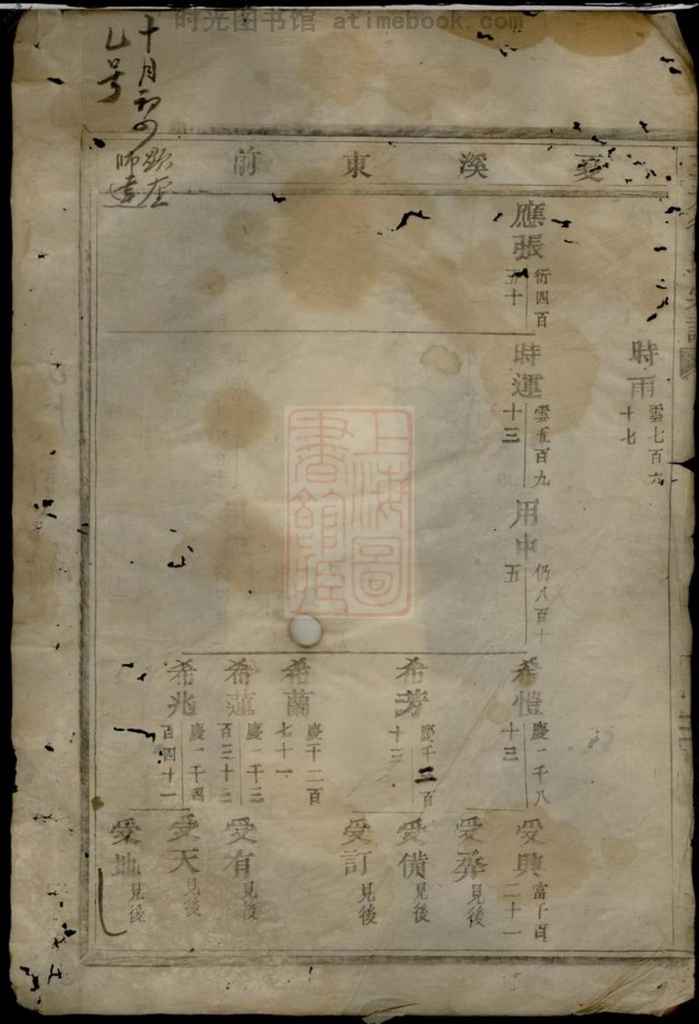 时光图书馆 atimebook.com
十月初四
乙号
師遠
溪東前
應張
衍四百
五十
時雨
雲七百六
十七
時運
雲五百九
十三
用中
仍八百十
五
上海圖
書館藏
希愷
慶一千八
十三
希芳
慶千二百
十三
希蘭
慶千二百
七十一
希蓮
慶一千三
百三十三
希兆
慶一千四
百四十一
受興
富千百
二十一
受葬 見後
受備 見後
受訂 見後
受有 見後
受天 見後
受地 見後